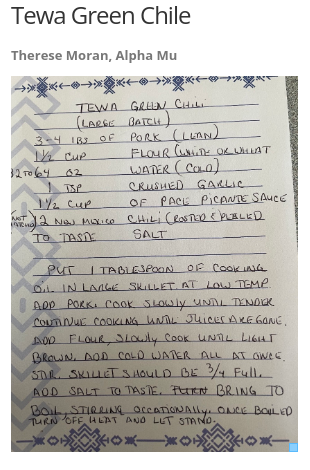 Tewa Green Chile
Therese Moran, Alpha Mu
TEWA GREEN CHILI
(LARGE BATCH)
3-4 lBS OF PORK (LEAN)
1 1/2 CUP FLOUR (WHITE OR WHEAT
TO 64 OZ WATER (COLD)
1 TSP CRUSHED GARLIC
1 1/2 CUP OF PACE PICANTE SAUCE
12 NEW MEXICO CHILI (ROSTED & PEELED
TO TASTE SALT
PUT 1 TABLESPOON OF COOKING
OIL IN LARGE SKILLET AT LOW TEMP
ADD PORK. COOK SLOWLY UNTIL TENDER
CONTINUE COOKING UNTIL JUICES ARE GONE.
ADD FLOUR, SLOWLY COOK UNTIL LIGHT
BROWN. ADD COLD WATER ALL AT ONCE.
STIR. SKILLET SHOULD BE 3/4 FULL.
ADD SALT TO TASTE. TURN BRING TO
BOIL, STIRRING OCCATIONALLY. ONCE BOILED
TURN OFF HEAT AND LET STAND.